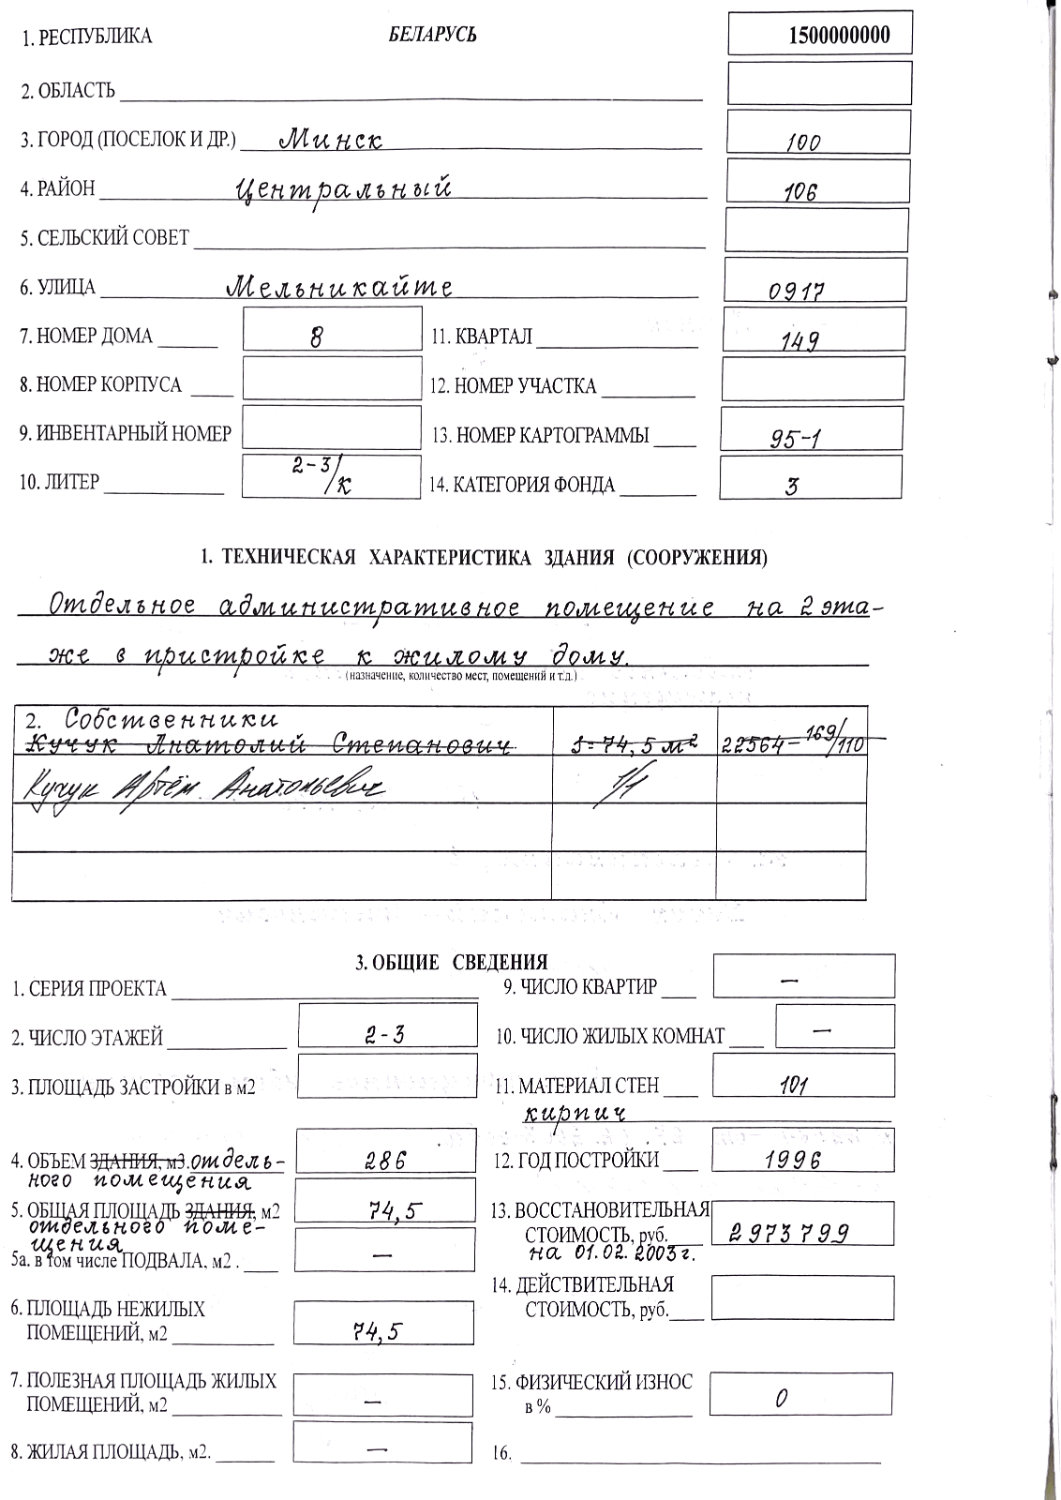 1. РЕСПУБЛИКА БЕЛАРУСЬ 1500000000
2. ОБЛАСТЬ
3. ГОРОД (ПОСЕЛОК И ДР.) Минск 100
4. РАЙОН Центральный 106
5. СЕЛЬСКИЙ СОВЕТ
6. УЛИЦА Мельникайте 0917
7. НОМЕР ДОМА 8 11. КВАРТАЛ 149
8. НОМЕР КОРПУСА 12. НОМЕР УЧАСТКА
9. ИНВЕНТАРНЫЙ НОМЕР 13. НОМЕР КАРТОГРАММЫ 95-1
10. ЛИТЕР 2-3/к 14. КАТЕГОРИЯ ФОНДА 3
1. ТЕХНИЧЕСКАЯ ХАРАКТЕРИСТИКА ЗДАНИЯ (СООРУЖЕНИЯ)
Отдельное административное помещение на 2 эта-
же в пристройке к жилому дому.
(назначение, количество мест, помещений и т.д.)
2. Собственники
Кучук Анатолий Степанович S=74,5 м² 22564-169/110
Кучук Артём Анатольевич 1/1
3. ОБЩИЕ СВЕДЕНИЯ
1. СЕРИЯ ПРОЕКТА 9. ЧИСЛО КВАРТИР —
2. ЧИСЛО ЭТАЖЕЙ 2-3 10. ЧИСЛО ЖИЛЫХ КОМНАТ —
3. ПЛОЩАДЬ ЗАСТРОЙКИ в м2 11. МАТЕРИАЛ СТЕН 101
кирпич
4. ОБЪЕМ ЗДАНИЯ, м3. отдель- 286 12. ГОД ПОСТРОЙКИ 1996
ного помещения
5. ОБЩАЯ ПЛОЩАДЬ ЗДАНИЯ, м2 74,5 13. ВОССТАНОВИТЕЛЬНАЯ
отдельного поме- СТОИМОСТЬ, руб. 2973799
щения на 01.02.2003г.
5а. в том числе ПОДВАЛА, м2 . —
14. ДЕЙСТВИТЕЛЬНАЯ
СТОИМОСТЬ, руб.
6. ПЛОЩАДЬ НЕЖИЛЫХ
ПОМЕЩЕНИЙ, м2 74,5
7. ПОЛЕЗНАЯ ПЛОЩАДЬ ЖИЛЫХ 15. ФИЗИЧЕСКИЙ ИЗНОС
ПОМЕЩЕНИЙ, м2 — в % 0
8. ЖИЛАЯ ПЛОЩАДЬ, м2. — 16.